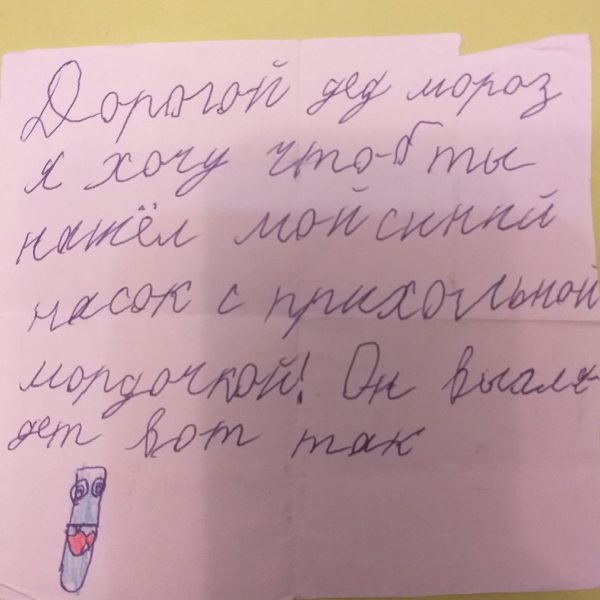 Дорогой дед мороз
я хочу что-б ты
нашёл мой синий
насок с прихольной
мордочкой! Он выгля-
дет вот так